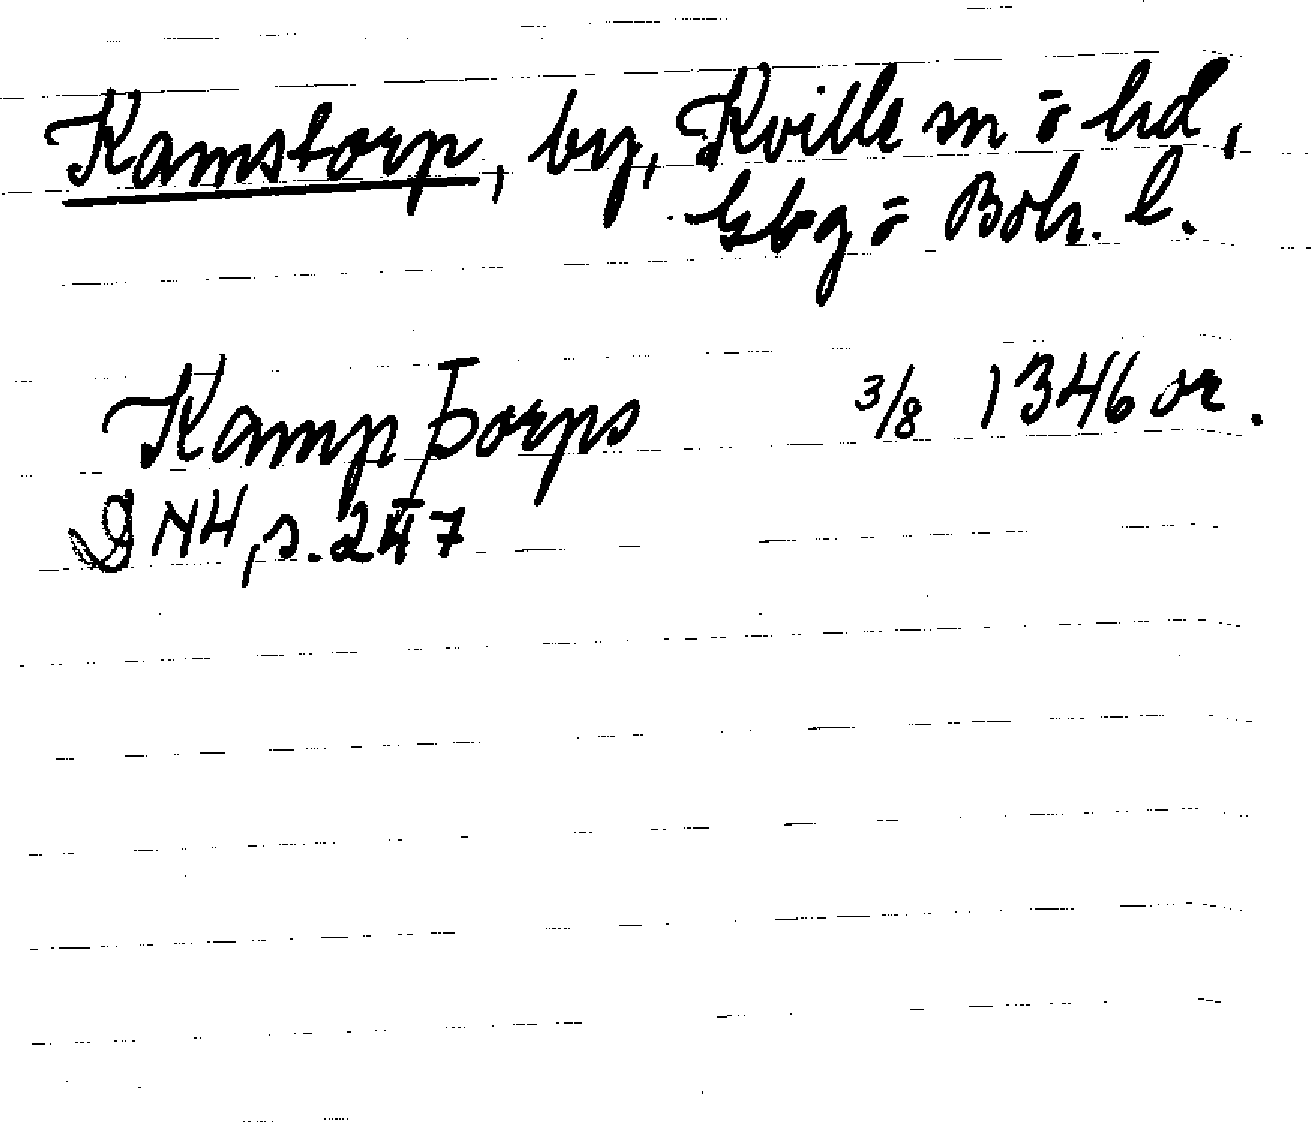 Kamstorp, by, Kville sn o hd,
Gbg o Boh. l.
Kampþorps 3/8 1346 or.
DN4, s. 247